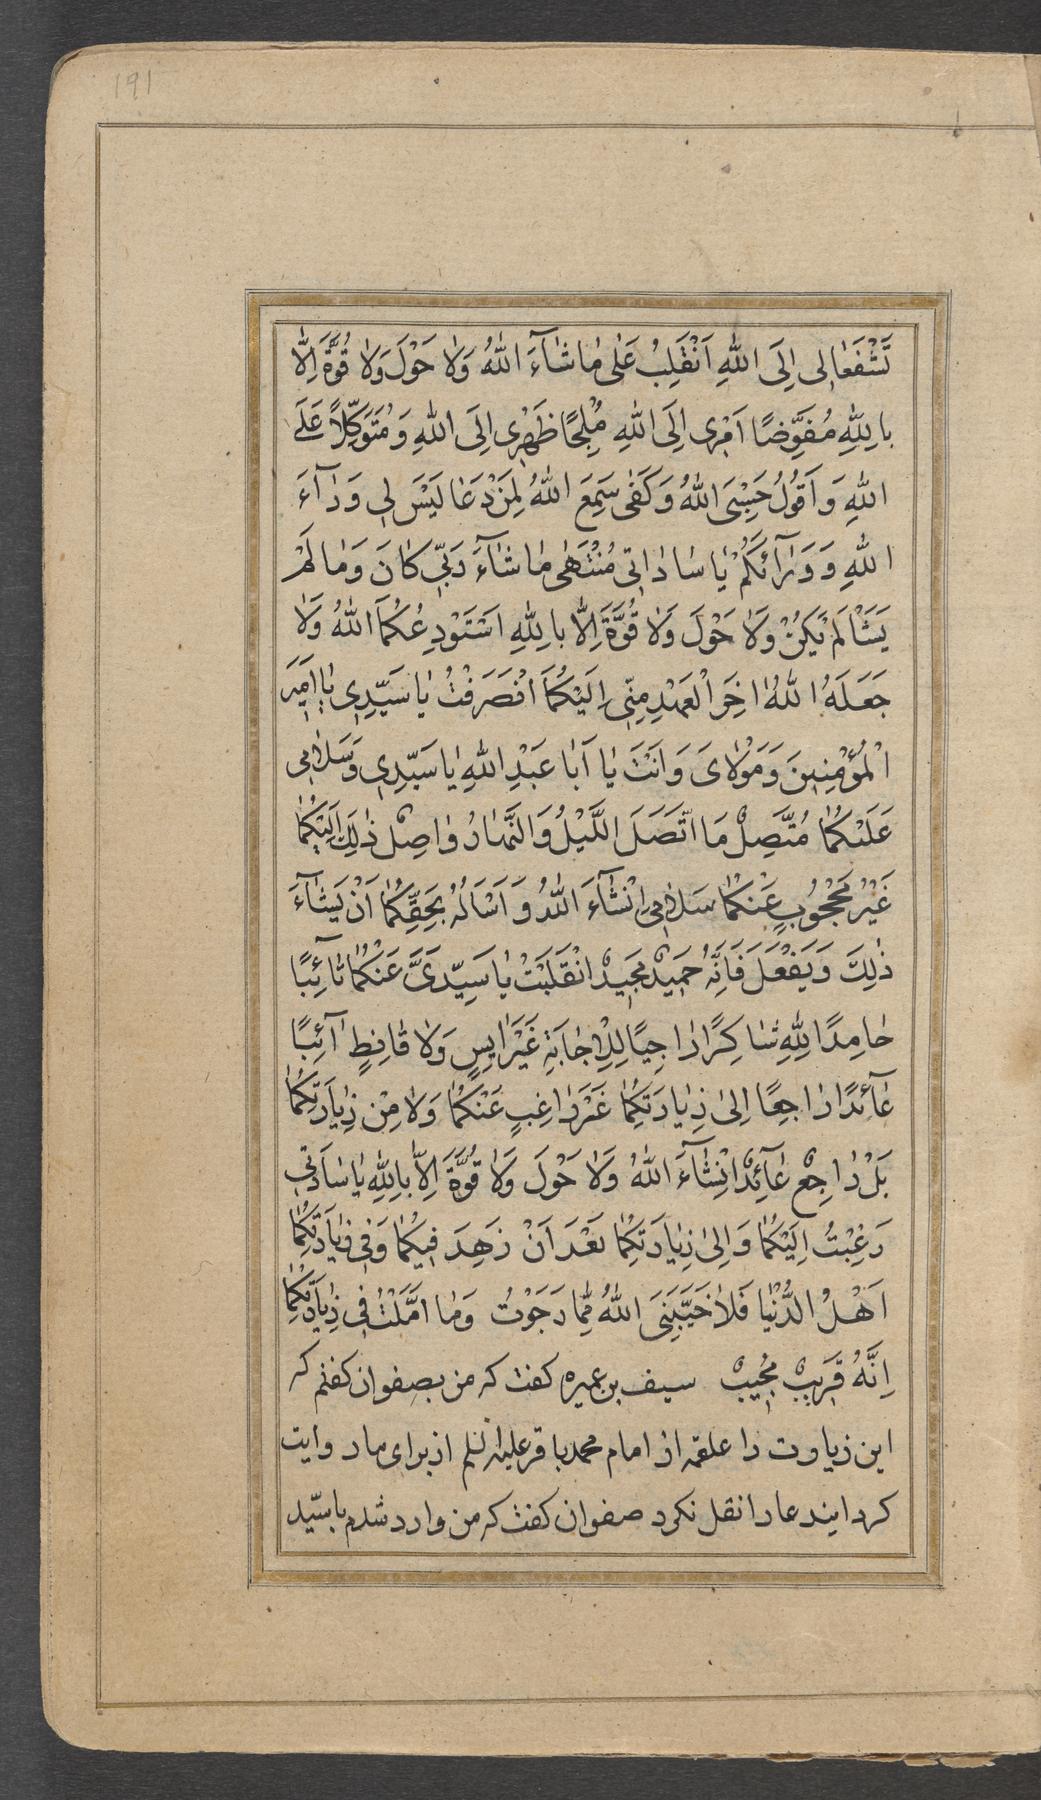 191
تَشْفَعٰا لِی اِلَی اللّٰهِ اَنْقَلِبُ عَلٰی مٰا شٰآءَ اللّٰهُ وَلٰا حَوْلَ وَلٰا قُوَّةَ اِلّٰا
بِاللّٰهِ مُفَوِّضًا اَمْرِی اِلَی اللّٰهِ مُلْجِئًا ظَهْرِی اِلَی اللّٰهِ وَ مُتَوَکِّلًا عَلَی
اللّٰهِ وَ اَقُولُ حَسْبِیَ اللّٰهُ وَ کَفٰی سَمِعَ اللّٰهُ لِمَنْ دَعٰا لَیْسَ لِی وَرٰآءَ
اللّٰهِ وَ وَرٰآئَکُمْ یٰا سٰادٰاتِی مُنْتَهٰی مٰا شٰآءَ رَبِّی کٰانَ وَ مٰا لَمْ
یَشَأْ لَمْ یَکُنْ وَلٰا حَوْلَ وَلٰا قُوَّةَ اِلّٰا بِاللّٰهِ اَسْتَوْدِعُکُمَا اللّٰهُ وَلٰا
جَعَلَهُ اللّٰهُ اٰخِرَ الْعَهْدِ مِنّی اِلَیْکُمَا انْصَرَفْتُ یٰا سَیِّدِی یٰا اَمِیرَ
الْمُؤْمِنِینَ وَ مَوْلٰایَ وَ اَنْتَ یٰا اَبٰا عَبْدِ اللّٰهِ یٰا سَیِّدِی وَ سَلٰامِی
عَلَیْکُمٰا مُتَّصِلٌ مَا اتَّصَلَ اللَّیْلُ وَ النَّهٰارُ وٰاصِلٌ ذٰلِکَ اِلَیْکُمٰا
غَیْرُ مَحْجُوبٍ عَنْکُمٰا سَلٰامِی اِنْشٰآءَ اللّٰهُ وَ اَسْاَلُهُ بِحَقِّکُمٰا اَنْ یَشٰآءَ
ذٰلِکَ وَ یَفْعَلَ فَاِنَّهُ حَمِیدٌ مَجِیدٌ انْقَلَبْتُ یٰا سَیِّدَیَّ عَنْکُمٰا تٰآئِبًا
حٰامِدًا لِلّٰهِ شٰاکِرًا رٰاجِیًا لِلْاِجٰابَةِ غَیْرَ اٰیِسٍ وَلٰا قٰانِطٍ اٰئِبًا
عٰآئِدًا رٰاجِعًا اِلٰی زِیٰارَتِکُمٰا غَیْرَ رٰاغِبٍ عَنْکُمٰا وَلٰا مِنْ زِیٰارَتِکُمٰا
بَلْ رٰاجِعٌ عٰآئِدٌ اِنْشٰآءَ اللّٰهُ وَلٰا حَوْلَ وَلٰا قُوَّةَ اِلّٰا بِاللّٰهِ یٰا سٰادَتِی
رَغِبْتُ اِلَیْکُمٰا وَ اِلٰی زِیٰارَتِکُمٰا بَعْدَ اَنْ زَهِدَ فِیکُمٰا وَ فِی زِیٰارَتِکُمٰا
اَهْلُ الدُّنْیٰا فَلٰا خَیَّبَنِیَ اللّٰهُ مِمّٰا رَجَوْتُ وَ مٰا اَمَّلْتُ فِی زِیٰارَتِکُمٰا
اِنَّهُ قَرِیبٌ مُجِیبٌ سیف بن عمیره کفت که من بصفوان کفتم که
این زیارت را علقمه از امام محمد باقر علیه السلم از برای ما روایت
کرد این دعا را نقل نکرد صفوان کفت که من وارد شدم با سیّد